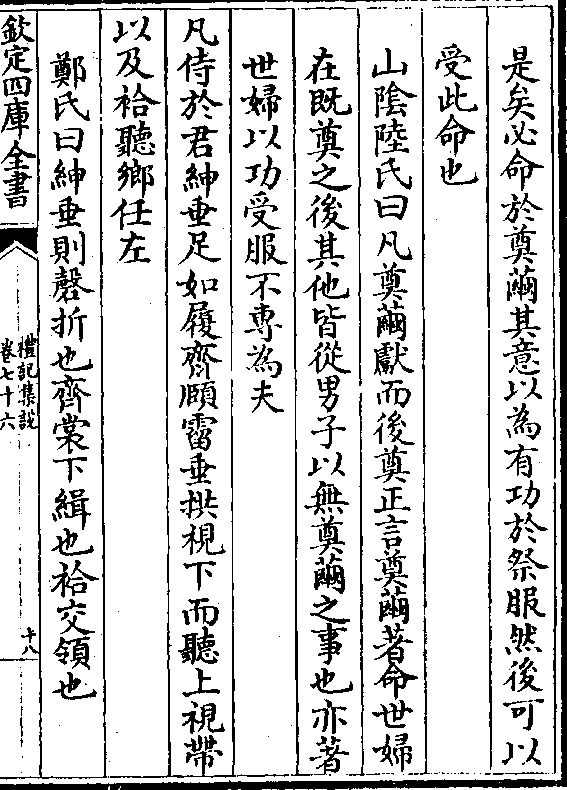 是矣必命於奠繭其意以為有功於祭服然後可以
受此命也
山陰陸氏曰凡奠繭獻而後奠正言奠繭著命世婦
在既奠之後其他皆從男子以無奠繭之事也亦著
世婦以功受服不專為夫
凡侍於君紳垂足如履齊頤霤垂拱視下而聽上視帶
以及袷聽鄉任左
鄭氏曰紳垂則磬折也齊裳下緝也袷交領也
欽定四庫全書
禮記集說
卷七十六
十八